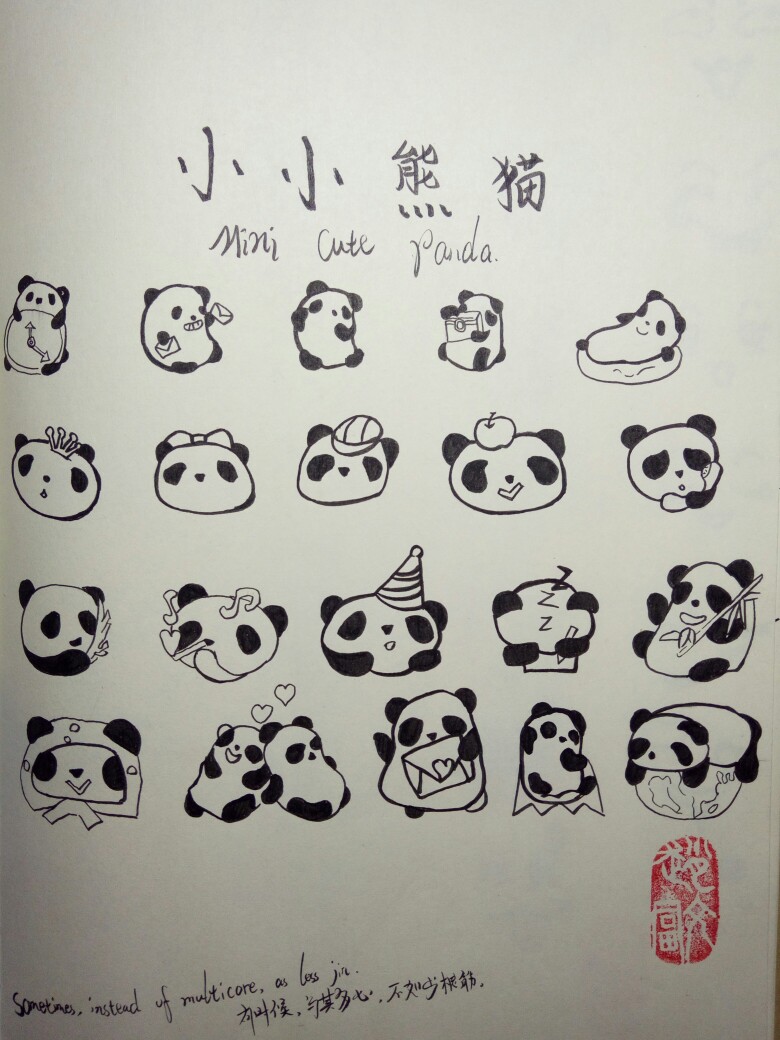 小小熊猫
Mini Cute Panda.
z
z
z
Sometimes, instead of multicore, as less jin.
有时候，与其多心，不如少根筋。